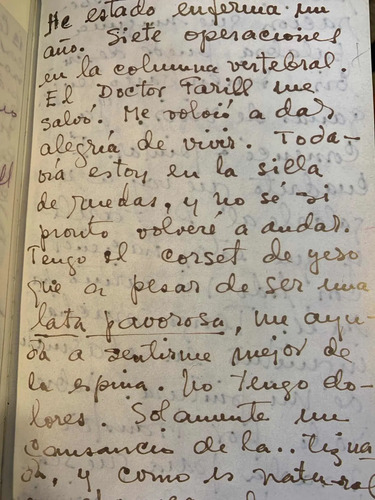 He estado enferma un
año. Siete operaciones
en la columna vertebral.
El Doctor Farill me
salvó. Me volvió a dar
alegría de vivir. Toda-
vía estoy en la silla
de ruedas, y no sé si
pronto volveré a andar.
Tengo el corset de yeso
que a pesar de ser una
lata pavorosa, me ayu-
da a sentirme mejor de
la espina. No Tengo do-
lores. Solamente un
cansancio de la.. tizna
da, y como es natural